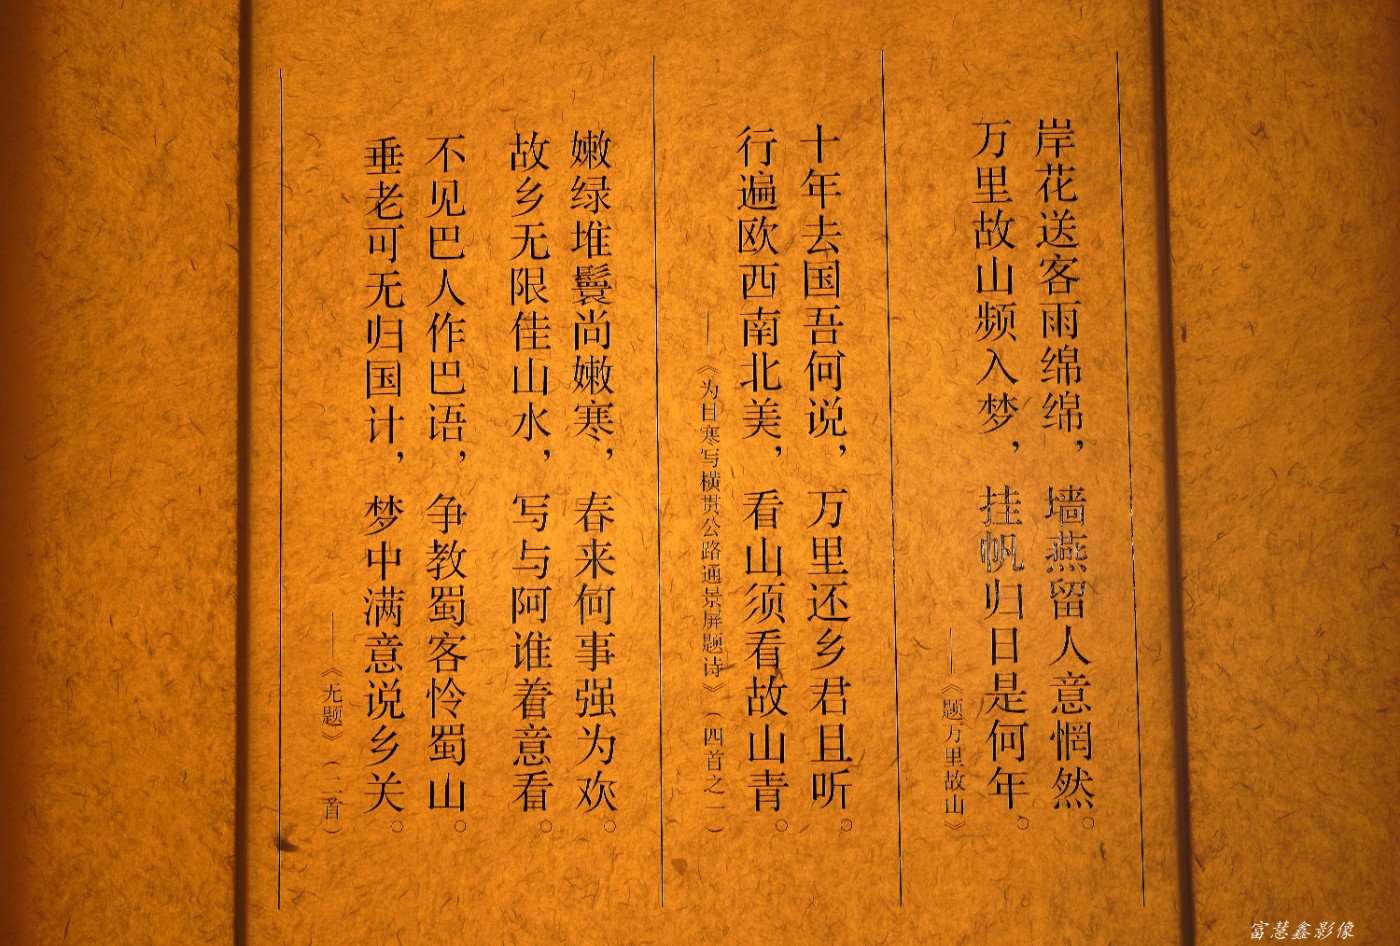 岸花送客雨绵绵，墙燕留人意惘然。
万里故山频入梦，挂帆归日是何年。
——《题万里故山》
十年去国吾何说，万里还乡君且听。
行遍欧西南北美，看山须看故山青。
——《为目寒写横贯公路通景屏题诗》（四首之一）
嫩绿堆鬟尚嫩寒，春来何事强为欢。
故乡无限佳山水，写与阿谁着意看。
不见巴人作巴语，争教蜀客怜蜀山。
垂老可无归国计，梦中满意说乡关。
——《无题》（二首）
富慧鑫影像